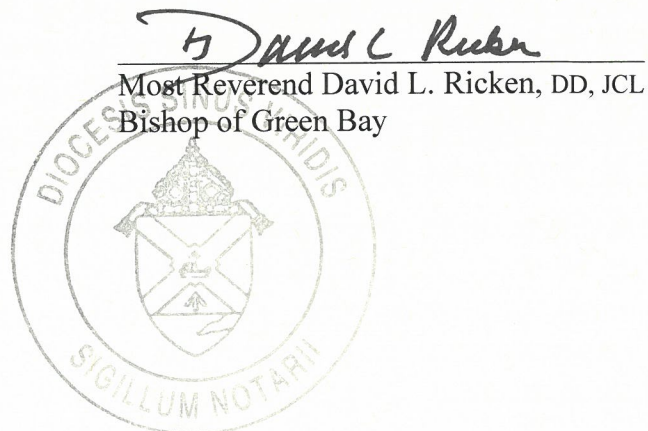 ✠ David L Ricken
Most Reverend David L. Ricken, DD, JCL
Bishop of Green Bay
DIOCESIS SINUS VIRIDIS
SIGILLUM NOTARII